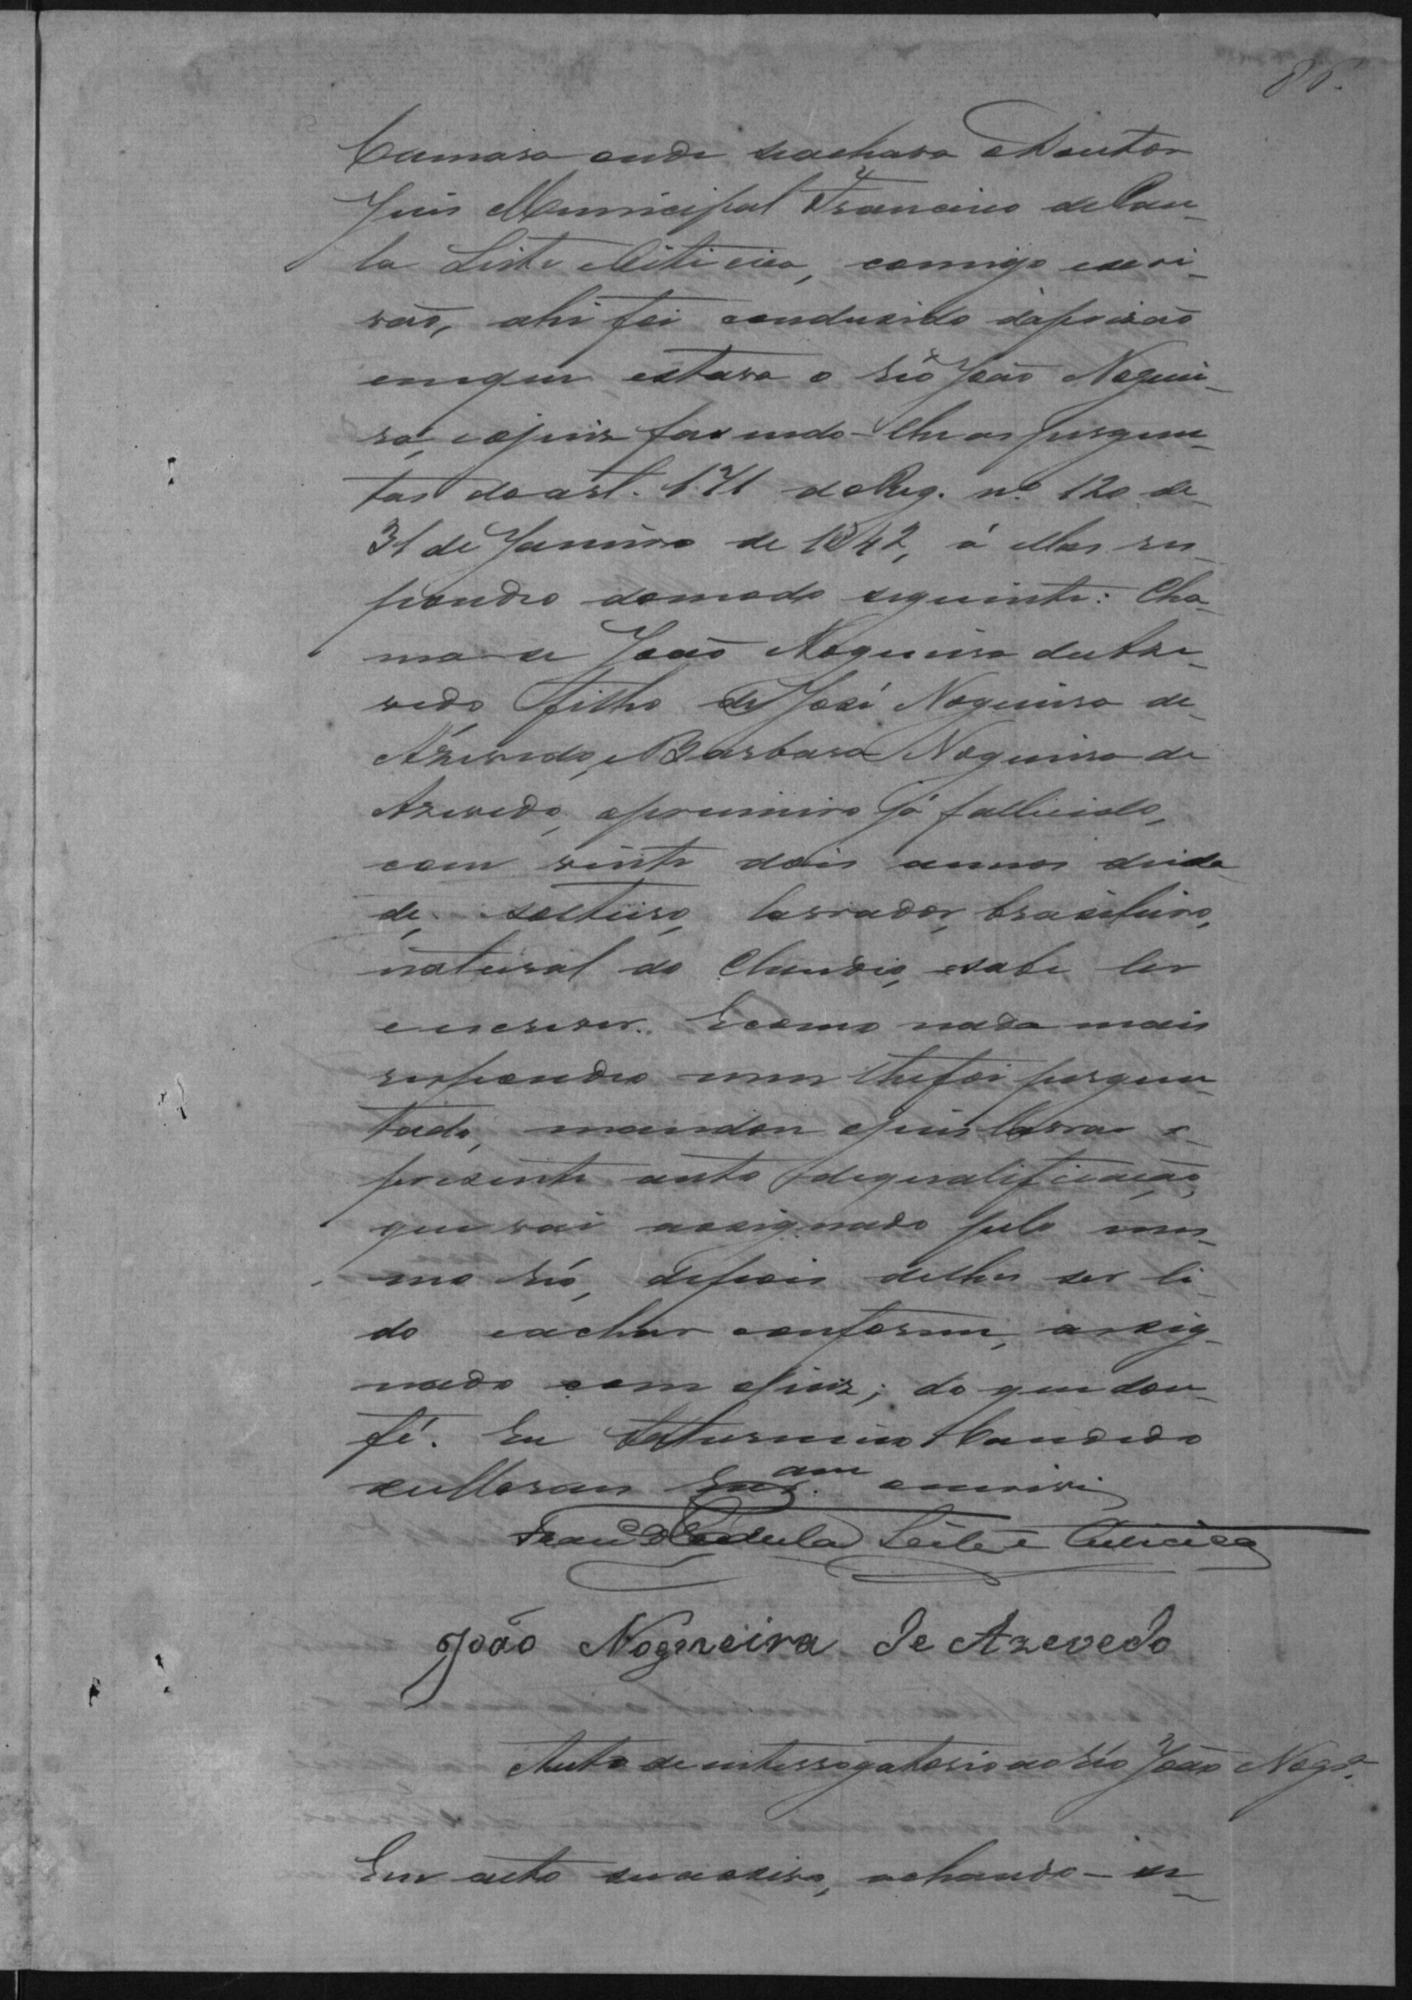 86.
Camara onde se achava o Doutor
Juis Municipal Francisco de Pau-
la Leite e Oiticica, comigo escri-
vão, ahi foi condusido da prisão
em que estava o réo João Noguei-
ra, e o juiz fasendo-lhe as pergun-
tas do art. 171 do Reg. nº 120 de
31 de Janeiro de 1842, á ellas res-
pondeo do modo seguinte: Cha-
ma-se João Nogueira de Aze-
vedo filho de José Nogueira de
Azevedo, e Barbara Nogueira de
Azevedo, o primeiro já fallecido,
com vinte dois annos de ida-
de, solteiro, lavrador, brasileiro,
natural do Claudio, e sabe ler
e escrever. E como nada mais
respondeo nem lhe foi pergun-
tado, mandou o juis lavrar o
presente auto de qualificação,
que vai assignado pelo mes-
mo réo, depois de lhe ser li-
do e achar conforme, assig-
nado com o juiz; do que dou
fé. Eu Saturnino Candido
am
escrevi
Franco de Paula Leite e Oiticica
João Nogueira de Azevedo
Auto de interrogatorio ao réo João Nogra.
Em acto successivo, achando-se